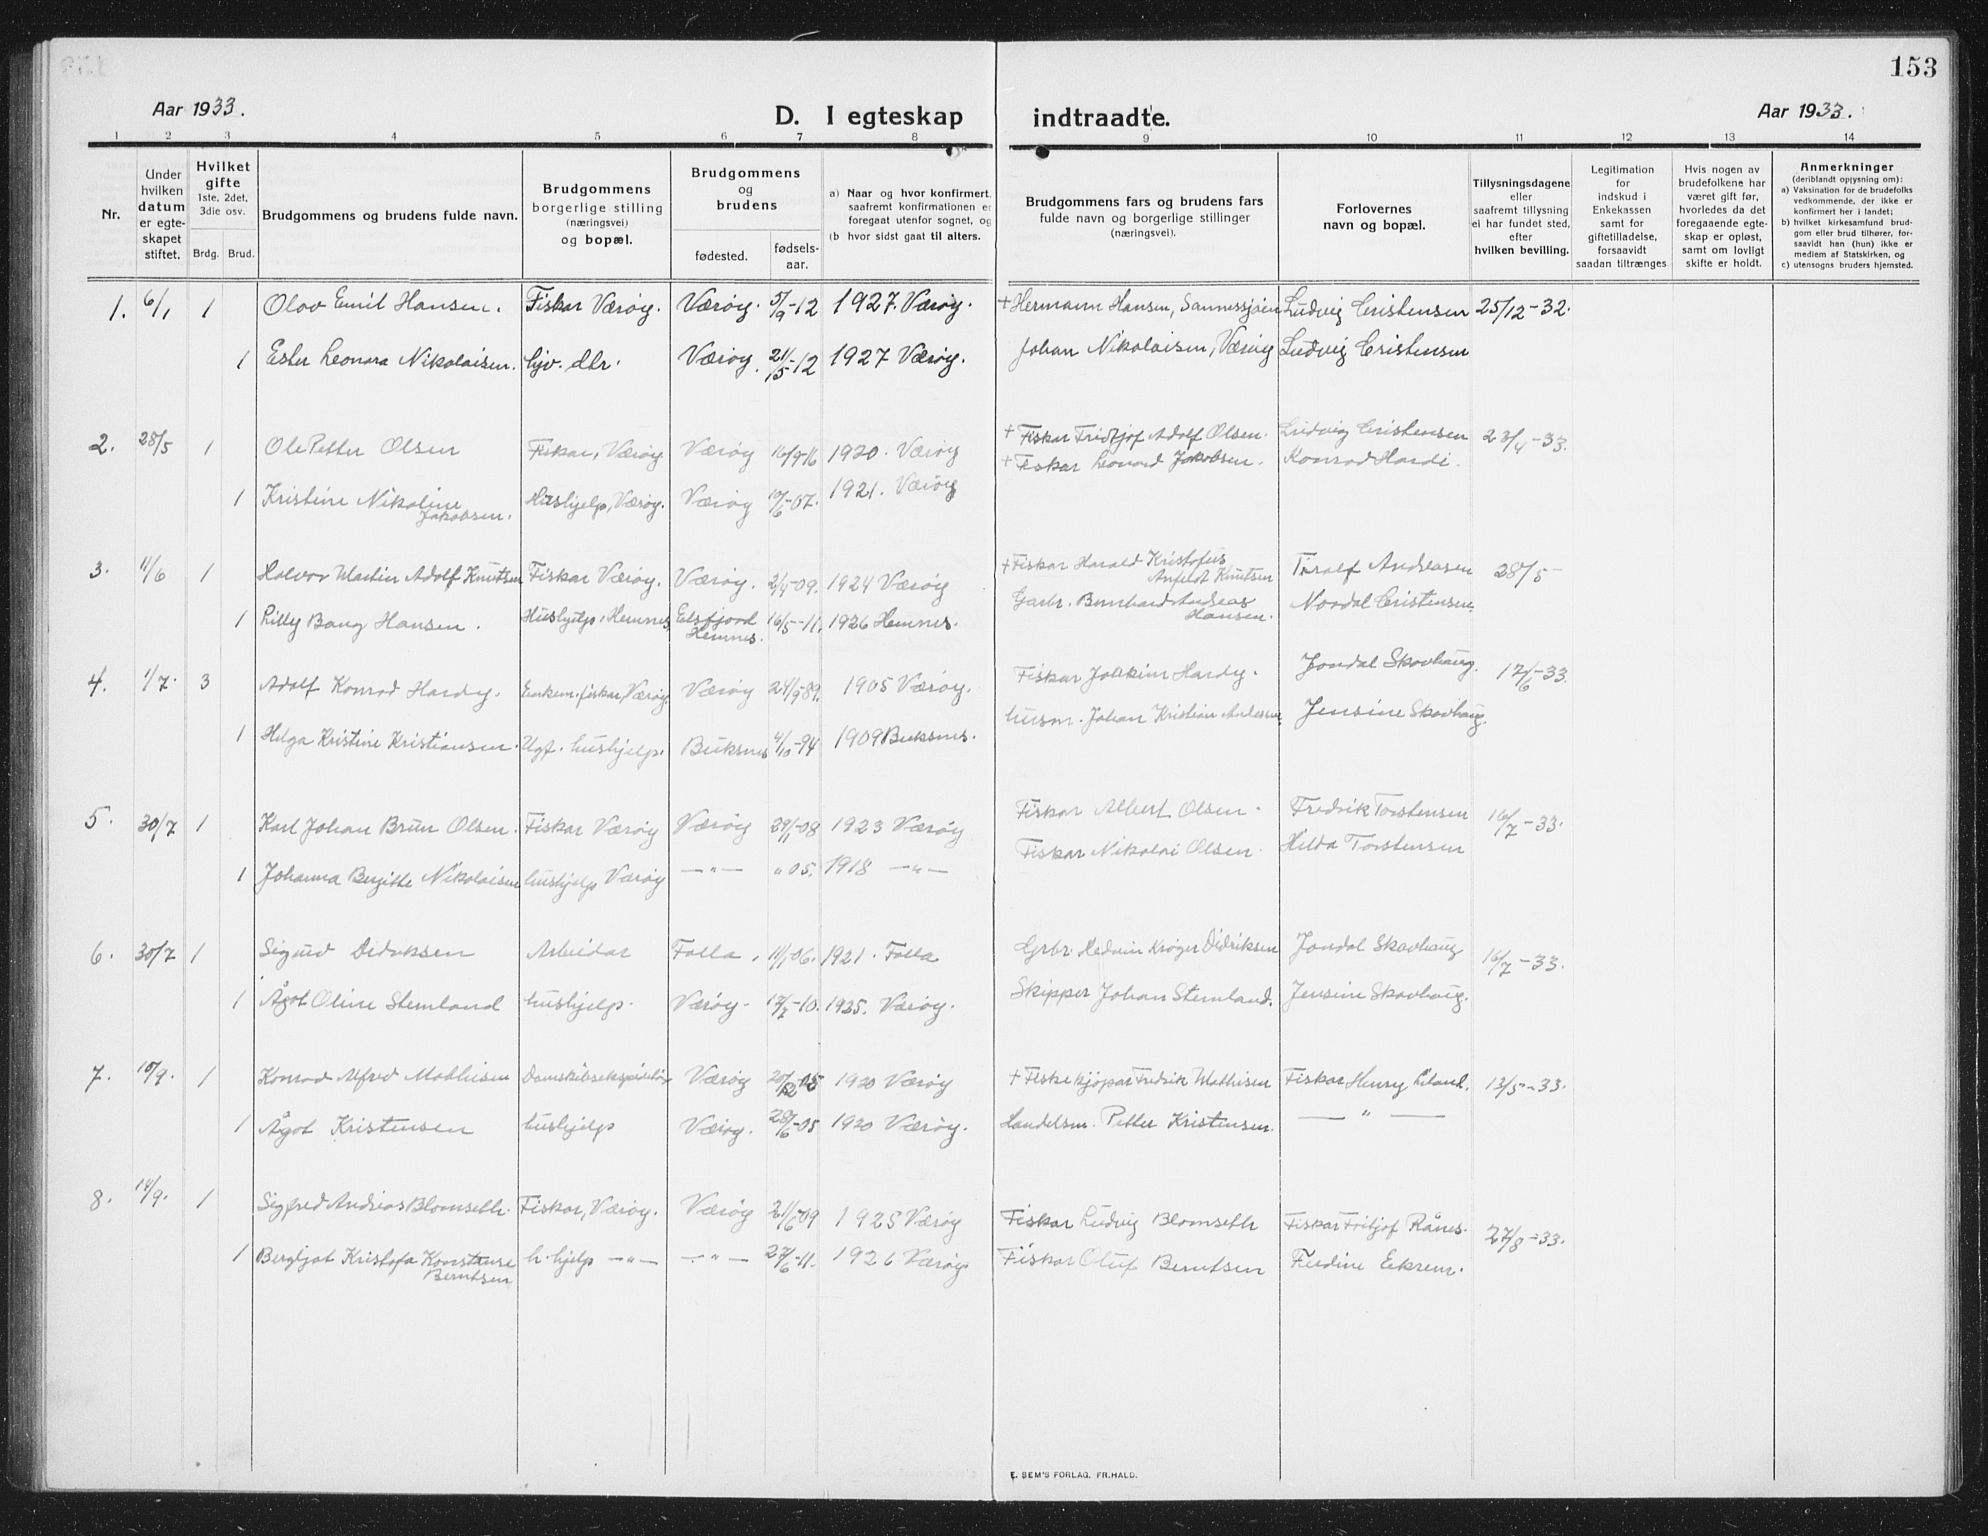 153
Aar 1933.
D. I egteskap indtraadte.
Aar 1933.
1 2 3 4 5 6 7 8 9 10 11 12 13 14
Nr.
Under hvilken datum er egte-skapet stiftet.
Hvilket gifte 1ste, 2det, 3die osv.
Brdg. Brud.
Brudgommens og brudens fulde navn.
Brudgommens borgerlige stilling (næringsvei) og bopæl.
Brudgommens og brudens
fødested.
fødsels-aar.
a) Naar og hvor konfirmert, saafremt konfirmationen er foregaat utenfor sognet, og
(b hvor sidst gaat til alters.
Brudgommens fars og brudens fars fulde navn og borgerlige stillinger (næringsvei).
Forlovernes navn og bopæl.
Tillysningsdagene eller saafremt tillysning ei har fundet sted, efter hvilken bevilling.
Legitimation for indskud i Enkekassen samt for giftetilladelse, forsaavidt saadan tiltrænges
Hvis nogen av brudefolkene har været gift før, hvorledes da det foregaaende egte-skap er opløst, samt om lovligt skifte er holdt.
Anmerkninger (deriblandt opjysning om):
a) Vaksination for de brudefolks vedkommende, der ikke er konfirmert her i landet;
b) hvilket kirkesamfund brud-gom eller brud tilhører, for-saavidt han (hun) ikke er medlem af Statskirken, og
c) utensogns bruders hjemsted.
1. 6/1 1 Olav Emil Hansen. Fiskar Værøy. Værøy. 5/9-12 1927. Værøy. + Hermann Hansen, Sannessjøen Ludvig Cristensen 25/12-32.
1 Ester Leonora Nikolaisen. Værøy. 21/5-12 1927 Værøy. Johan Nikolaisen, Værøy Ludvig Cristensen
2. 28/5 1 Ole Petter Olsen Fiskar, Værøy Værøy 1920. Værøy + Fiskar Fridtjof Adolf Olsen. Ludvig Cristensen 23/4-33.
+ Fiskar Leonard Jakobsen. Konrad Hardi.
1 Kristine Nikoline Jakobsen. Hushjelp, Værøy. Værøy 1921. Værøy
3. 11/6 1 Halvor Martin Adolf Knutsen Fiskar Værøy. Værøy. 2/4-09. 1924 Værøy + Fiskar Harald Kristofus Anfeldt Knutsen Toralf Andreasen 28/5-
1 Lilly Bang Hansen. Hushjelp, Hemnes Elsfjord Hemnes. 16/5-11. 1926 Hemnes. Garbr. Bernhard Andreas Hansen. Nordal Cristensen.
4. 1/7. 3 Adolf Konrad Hardy. Enkem. fiskar, Værøy Værøy 24/9-89. 1905 Værøy. Fiskar Joakim Hardy. Jondal Skovhaug. 17/6-33.
1 Helga Kristine Kristiansen. Ugf. hushjelp. Buksnes 4/10-94 1909 Buksnes. husm. Johan Kristian Jensine Skovhaug.
5. 30/7 1 Karl Johan Brun Olsen. Fiskar Værøy Værøy 29/1-08 1923 Værøy Fiskar Albert Olsen. Fredrik Torstensen 16/7-33.
1 Johanna Bergitte Nikolaisen hushjelp Værøy —"— " 05. 1918 —"— Fiskar Nikolai Olsen. Hilda Torstensen
6. 30/7 1 Sigurd Didriksen Arbeidar Folla, 11/1-06. 1921. Folla Grbr. Hedvin Krøger Didriksen Jondal Skovhaug 16/7-33.
1 Ågot Oline Stemland hushjelp. Værøy. 17/7-10. 1925. Værøy. Skipper Johan Stemland. Jensine Skovhaug.
7. 10/9. 1 Konrad Alfred Mathisen Damskibsekspeditør Værøy 20/12-05 1920 Værøy + Fiskekjøpar Fredrik Mathisen Fiskar Henry Liland. 13/5-33.
1 Ågot Kristensen hushjelp Værøy. 28/6-05 1920 Værøy. Handelsm. Petter Kristensen. — " —
8. 14/9. 1 Sigfred Andreas Blomseth. Fiskar, Værøy. Værøy 21/6-09 1925 Værøy Fiskar Ludvig Blomseth Fiskar Fritjof Rånes. 27/8-33.
1 Bergljot Kristofa Konstanse Berntsen h. hjelp —"— —"— 27/6-11. 1926 Værøy Fiskar Oluf Berntsen Ferdine Eekrem.
E. SEM'S FORLAG, FR.HALD.